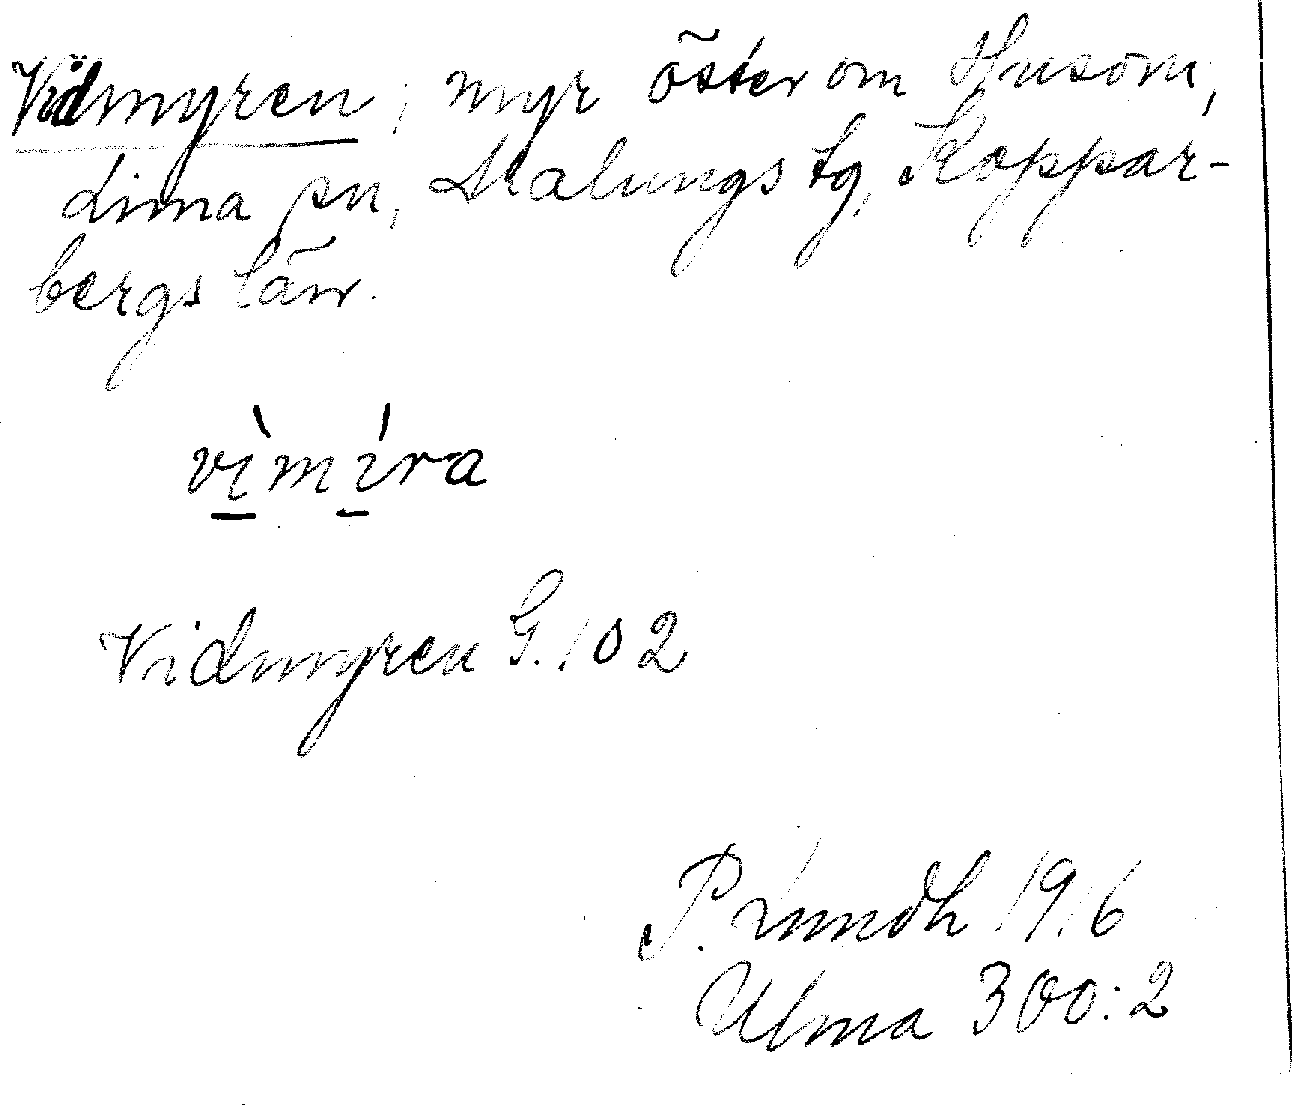 Vidmyren, myr öster om Husöm,
Lima sn, Malungs tg, Koppar-
bergs län.
vìmíra
Vidmyren G. 102
P. Lundh 1916
Ulma 300:2